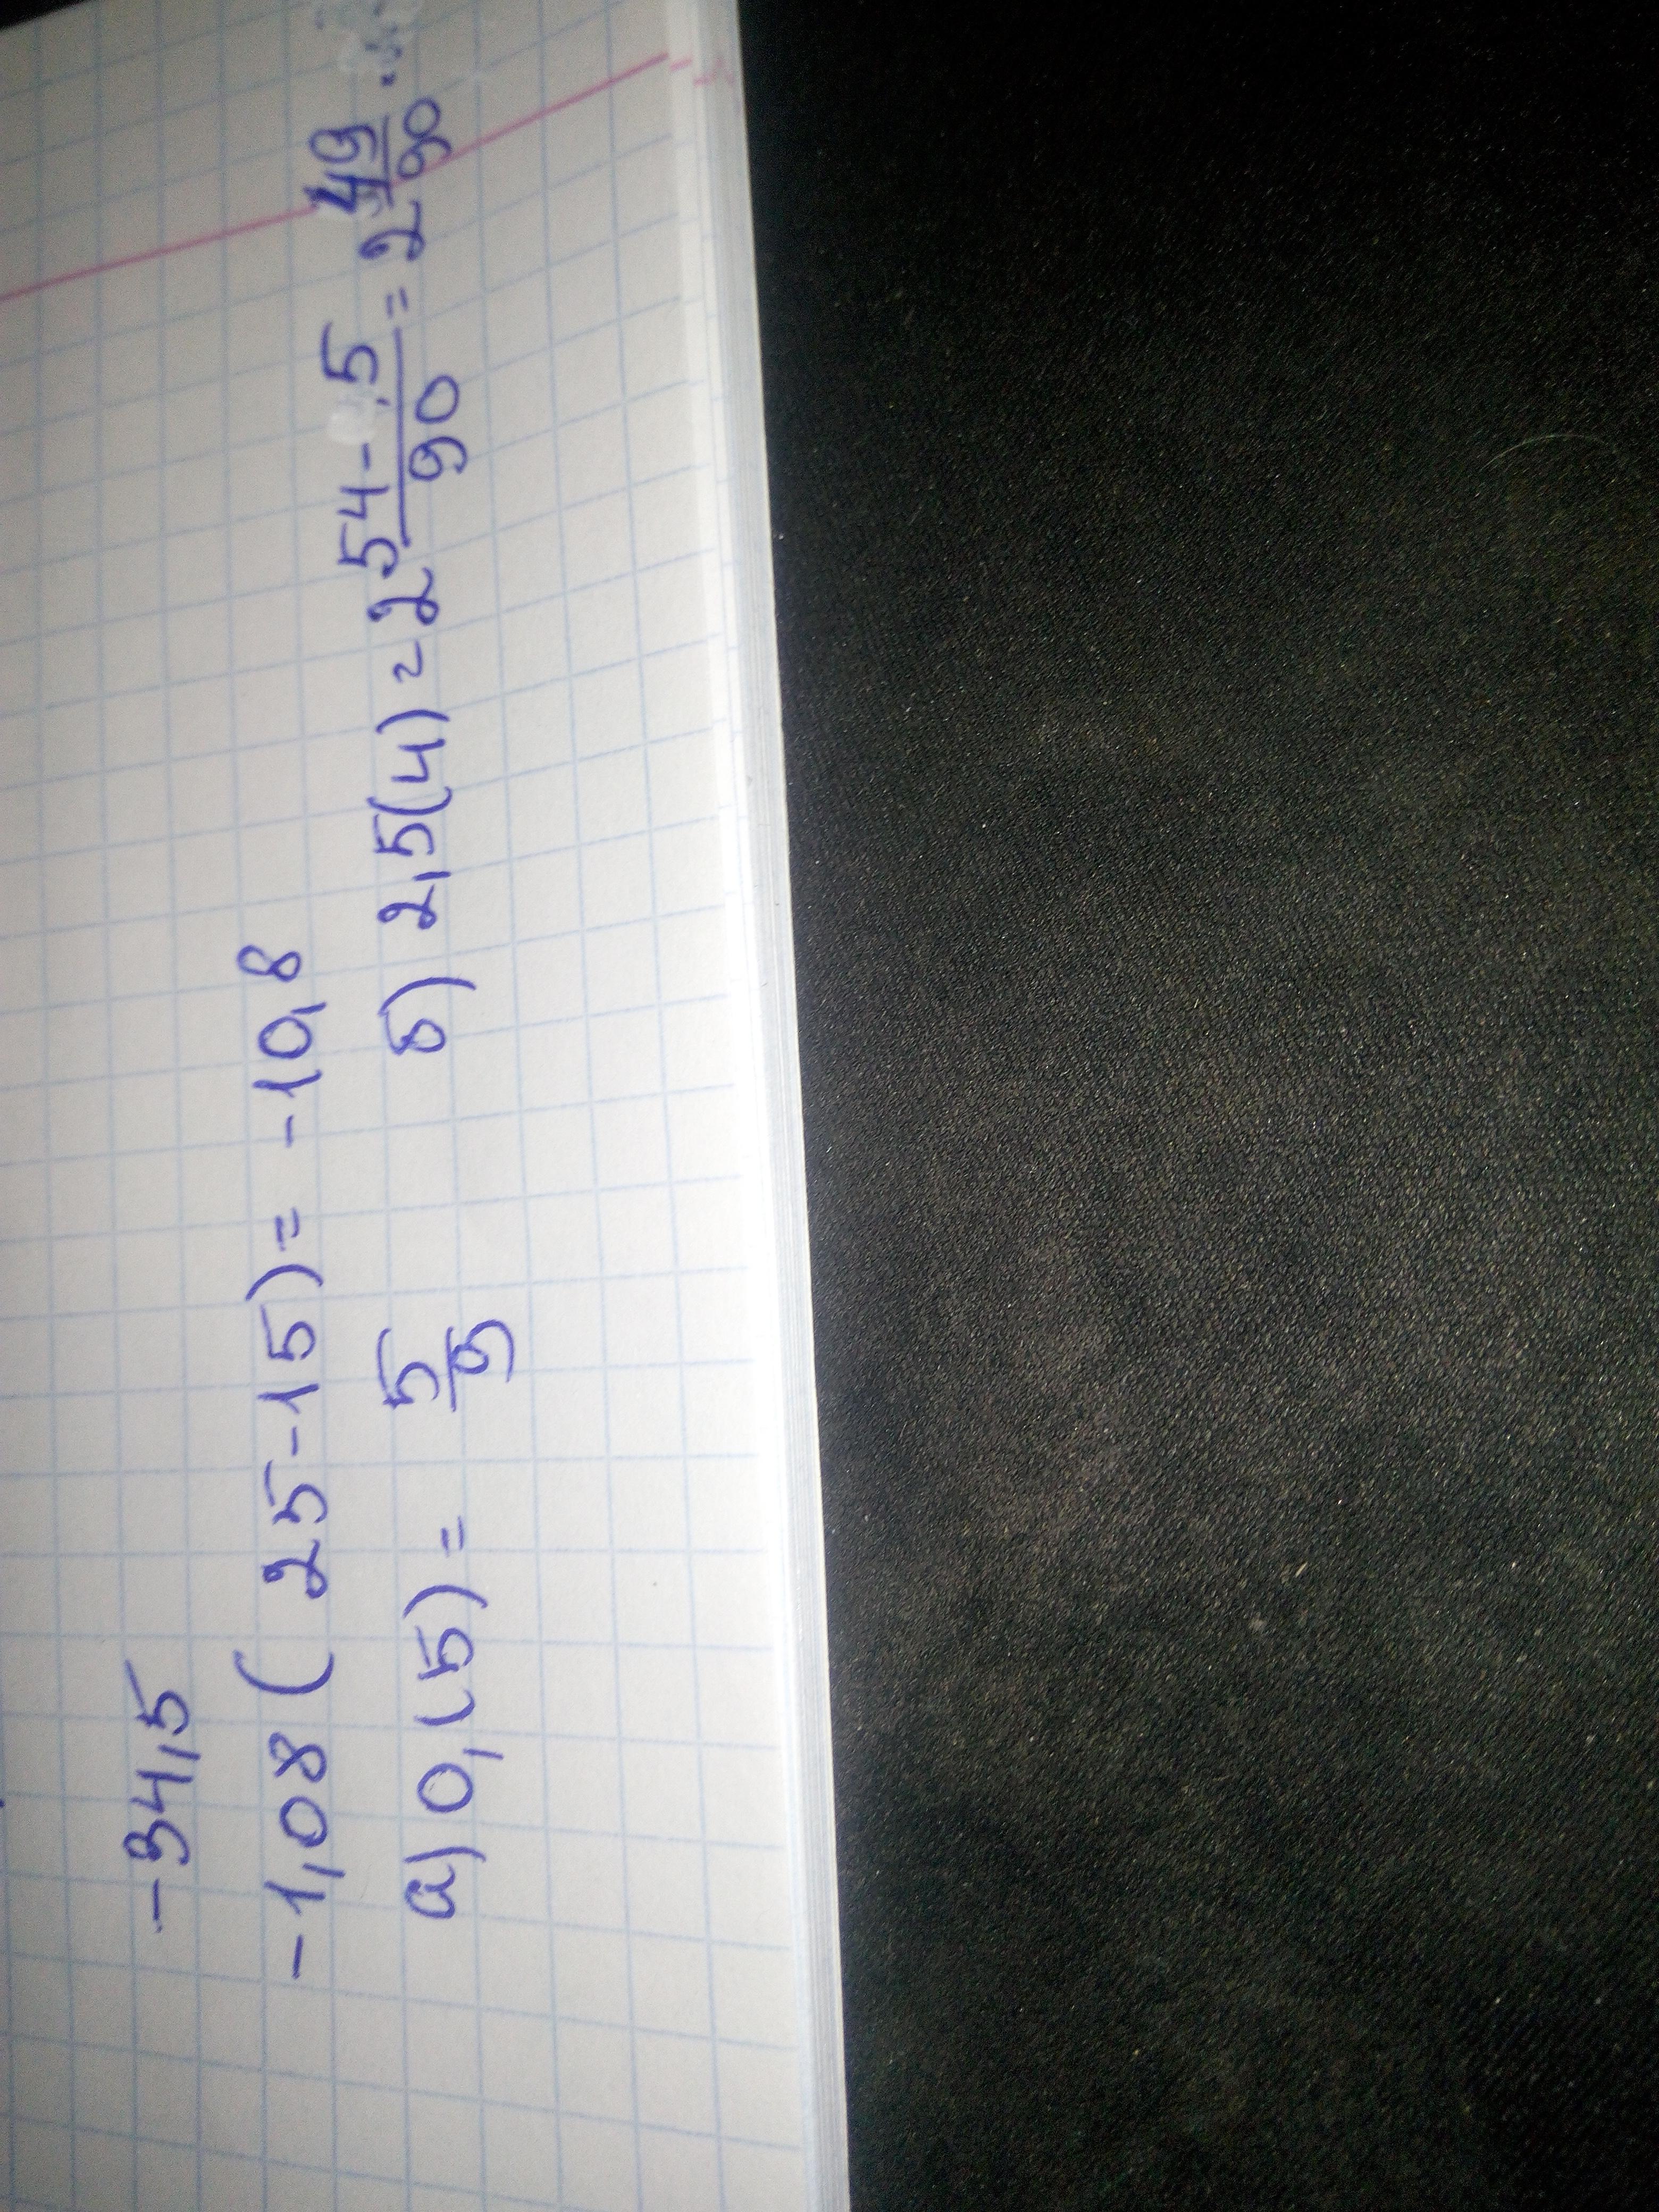 -34,5
-1,08 (25-15) = -10,8
а) 0,(5) = 5/9 б) 2,5(4) = 2 54-5/90 = 2 49/90